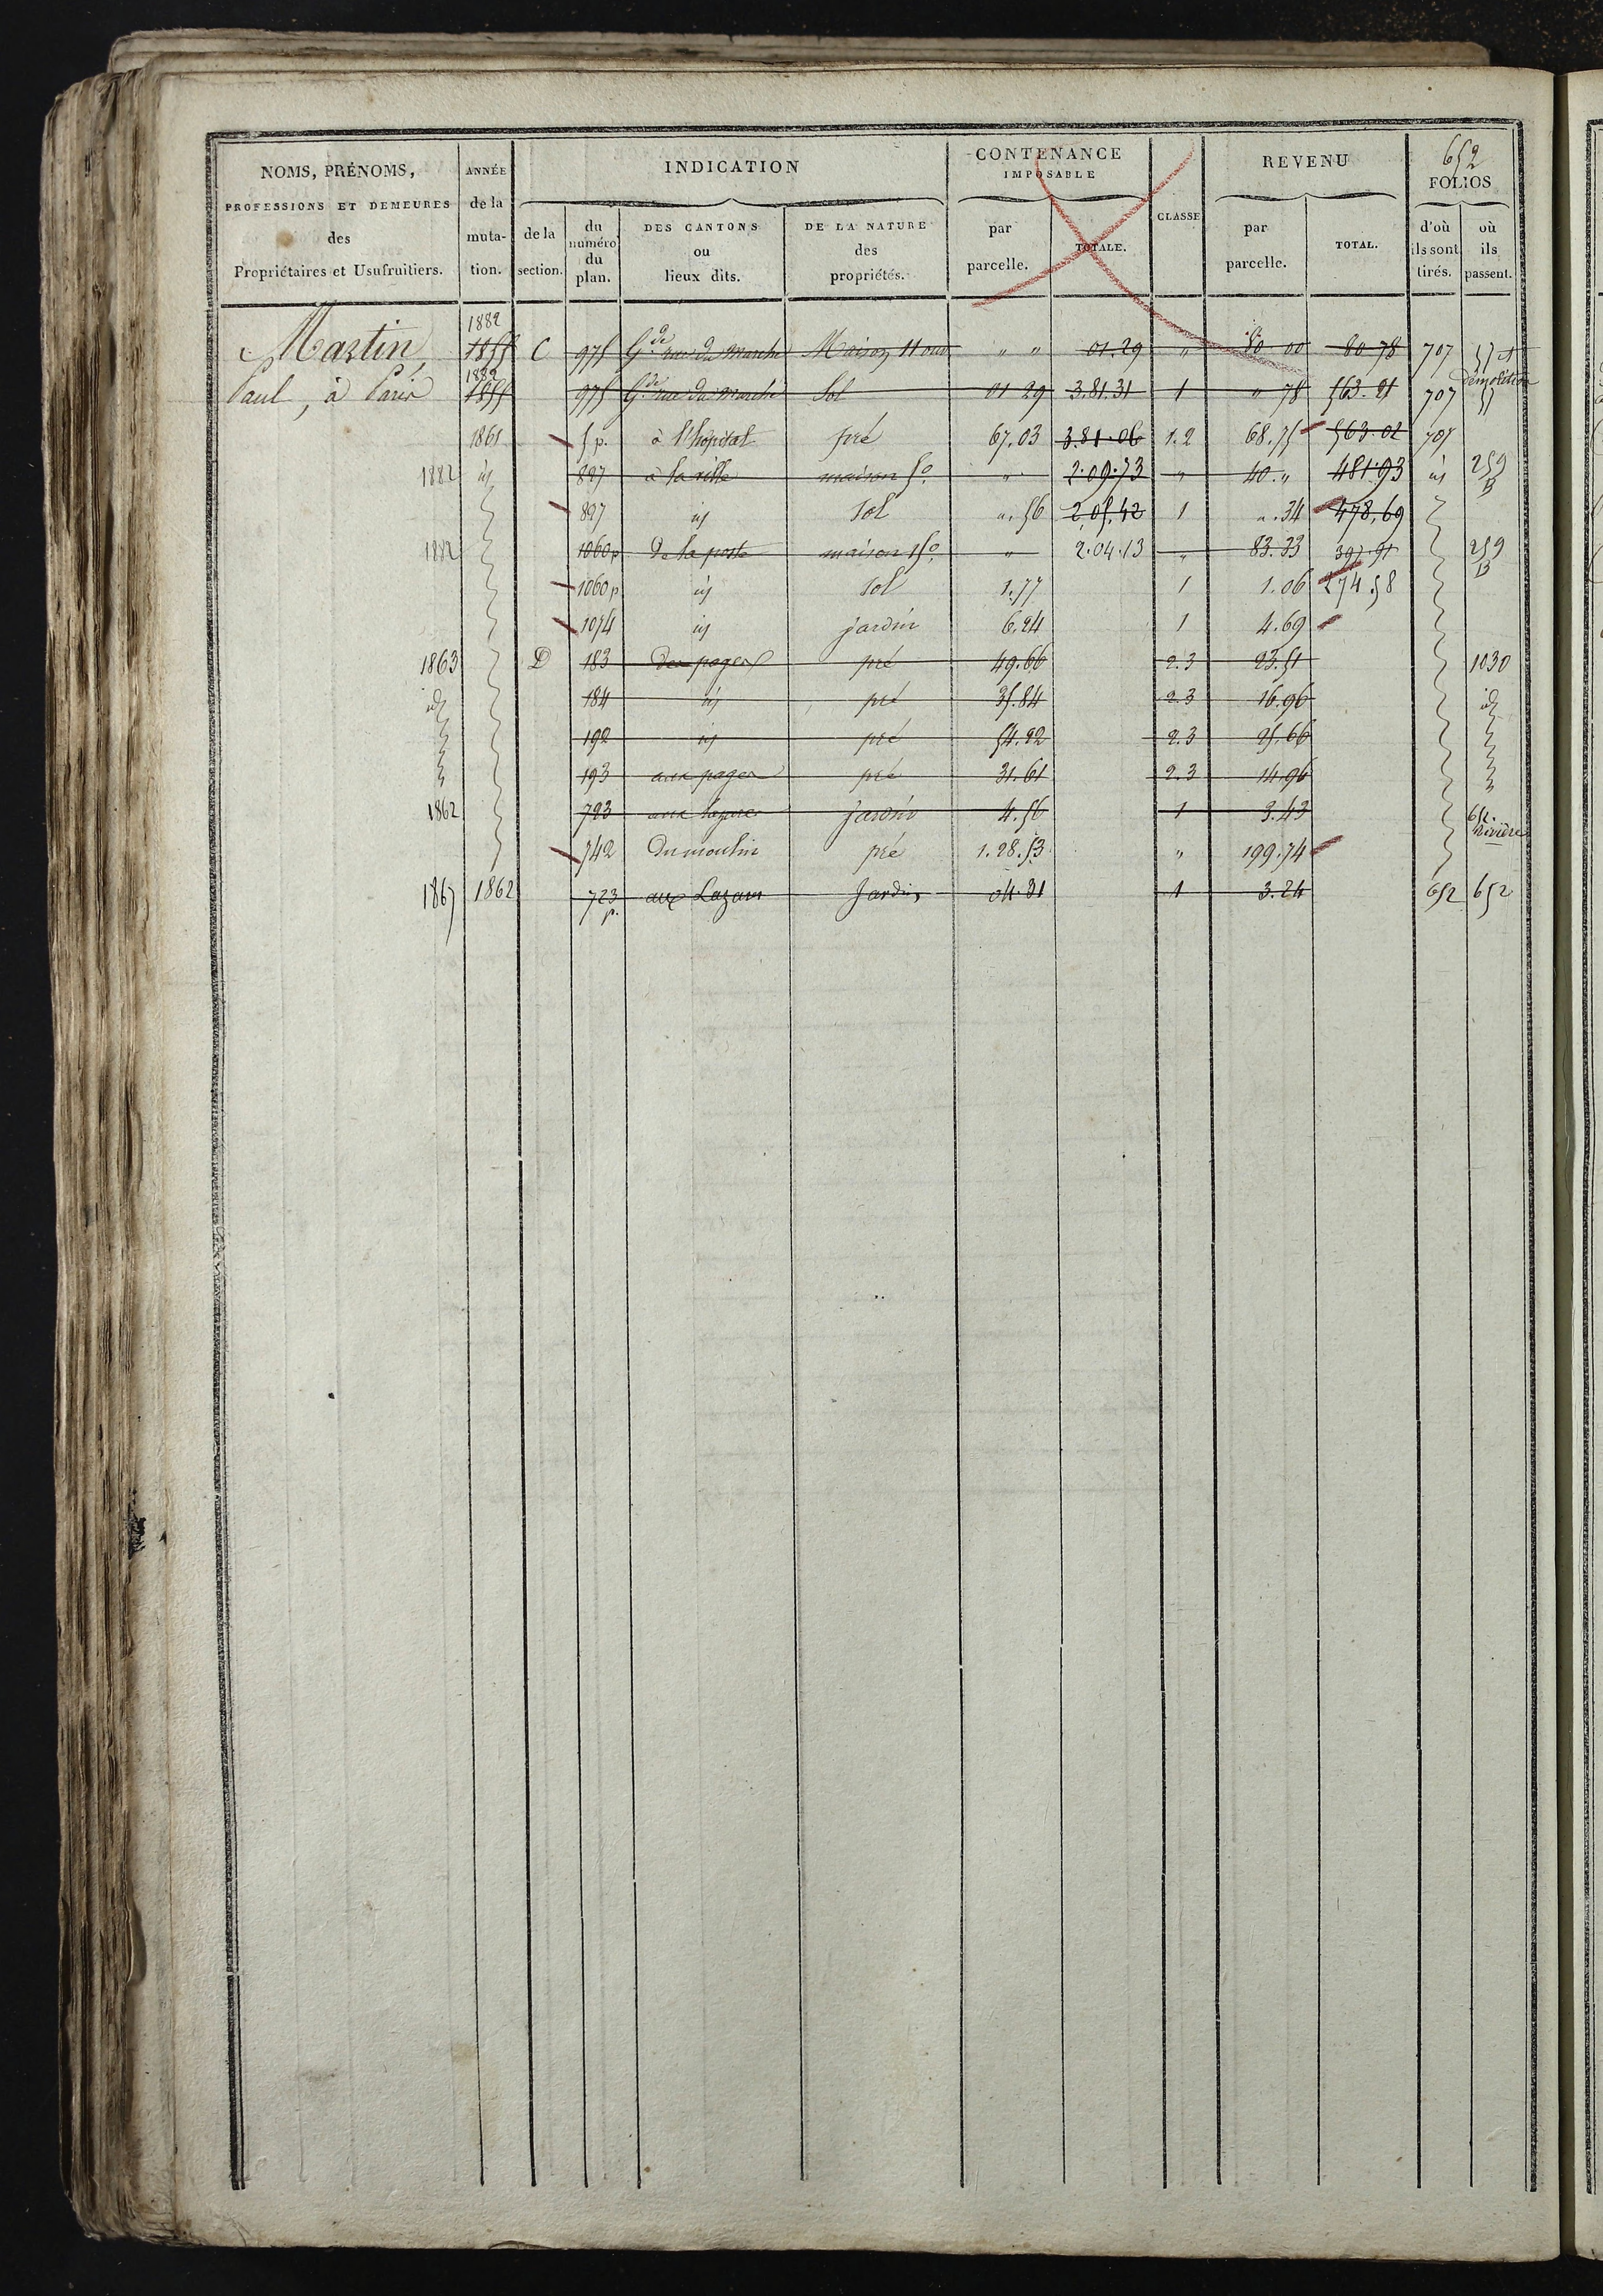 652
NOMS, PRÉNOMS, PROFESSIONS ET DEMEURES des Propriétaires et Usufruitiers.
ANNÉE de la muta-tion.
INDICATION
de la section.
du numéro du plan.
DES CANTONS ou lieux dits.
DE LA NATURE des propriétés.
CONTENANCE IMPOSABLE
par parcelle.
TOTALE.
CLASSE
REVENU
par parcelle.
TOTAL.
FOLIOS
d'où ils sont tirés.
où ils passent.
1882
Martin, 1855 C 975 Gde rue du marché Maison 11 ouv " " 01.29 " 80 00 80 78 707
1882 démolition
Paul, à Paris 1855 975 Gde rue du marché Sol 01 29 3.81.31 1 " 78 563.21 707
1861 5 p. à l'hopital pré 67.03 3.81.06 1.2 68.75 563.02 707
1882 id 897 à la ville maison 5o " 2.09.73 " 40." 481.93 id 259 B
897 id sol ".56 2.05.42 1 ".34 478.69
1882 1060p de la poste maison 15o " 2.04.13 " 83.33 397.91 259 B
1060p id sol 1.77 1 1.06 274.58
1054 id jardin 6.24 1 4.69
1863 D 183 des pages pré 49.66 2.3 23.51 1030
id 184 id pré 35.84 2.3 16.96 id
192 id pré 54.22 2.3 25.66
193 aux pages pré 31.61 2.3 14.96
1862 723 aux jardin 4.56 1 3.43 652. Rivière
742 du moulin pré 1.28.53 " 199.74
1867 1862 723 p. aux Lazare Jardin 04.31 1 3.24 652 652